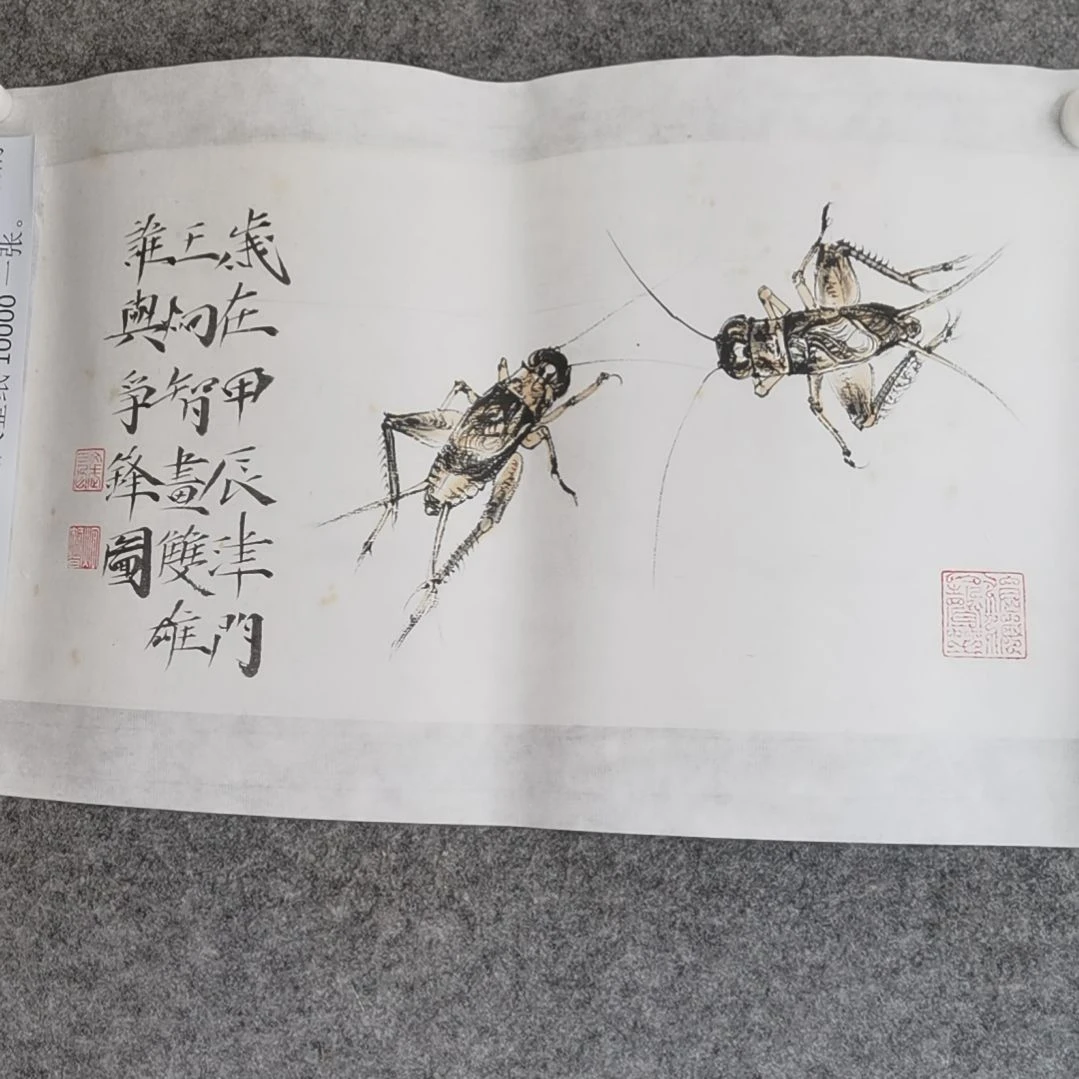 歲在甲辰津門
王炯智畫雙雄
誰與爭鋒圖
10000 一张。